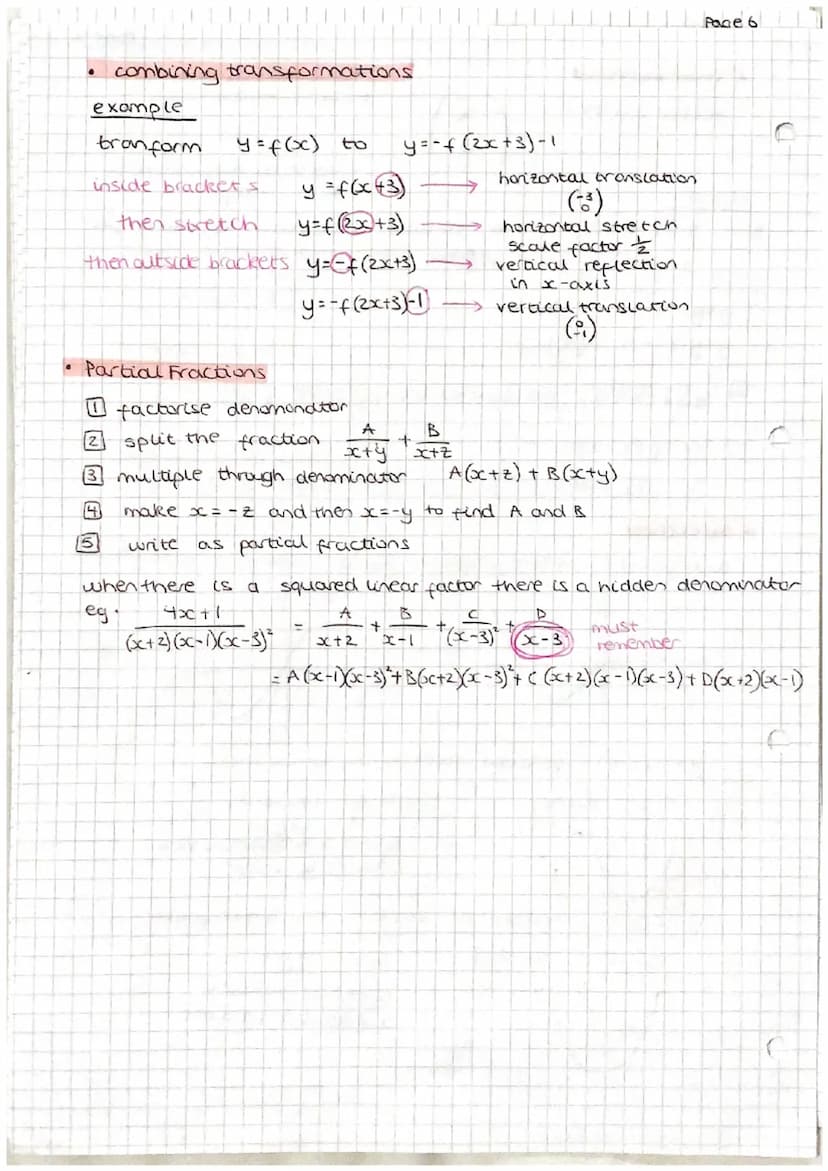 Page 6
• combining transformations
example
tranform y=f(x) to y=-f(2x+3)-1
inside brackets y=f(x+3) → horizontal translation
(-3 0)
then stretch y=f(2x+3) → horizontal stretch
scale factor 1/2
then outside brackets y=-f(2x+3) → vertical reflection
in x-axis
y=-f(2x+3)-1 → vertical translation
(0 -1)
• Partial Fractions
1 factorise denomondtor
2 split the fraction A/(x+y) + B/(x+z)
3 multiple through denominator A(x+z) + B(x+y)
4 make x=-z and then x=-y to find A and B
5 write as partial fractions
when there is a squared linear factor there is a hidden denominator
eg. (4x+1)/((x+2)(x-1)(x-3)²) = A/(x+2) + B/(x-1) + C/(x-3)² + D/(x-3) must
remember
= A(x-1)(x-3)²+B(x+2)(x-3)²+ C (x+2)(x-1)(x-3) + D(x+2)(x-1)